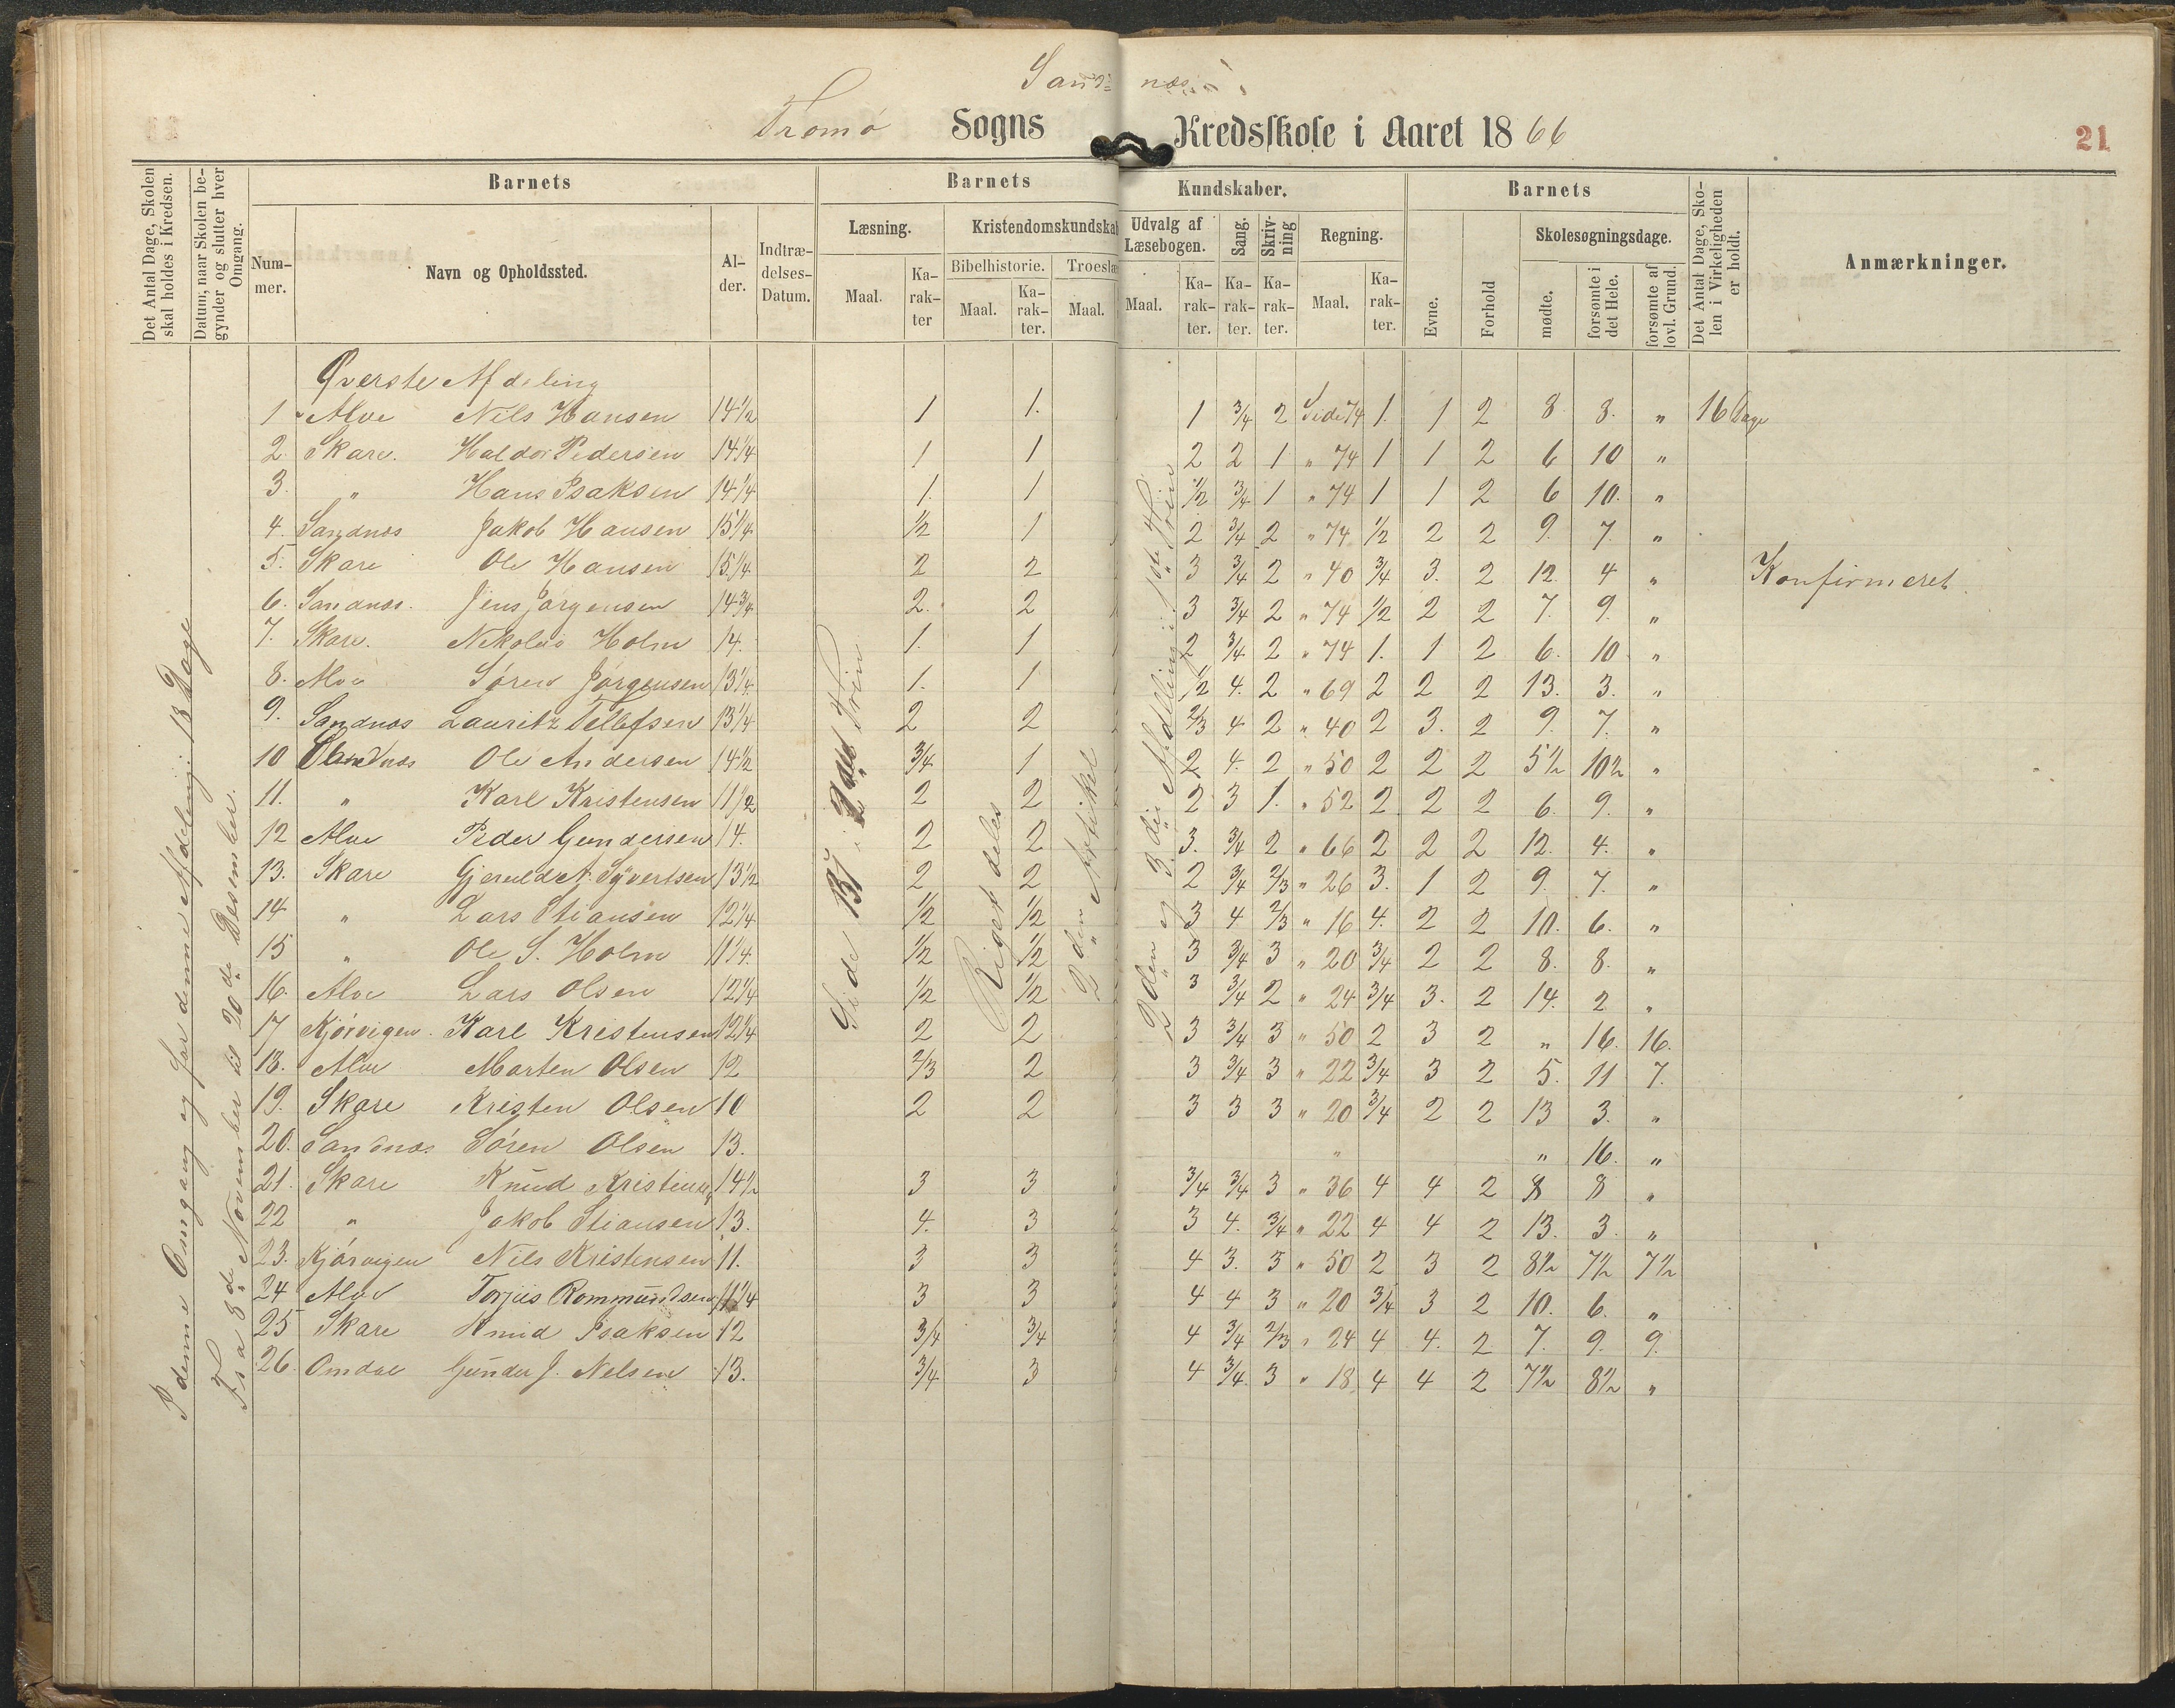 Sand= næs
Tromø Sogns Kredsskole i Aaret 1866
21
Det Antal Dage, Skolen skal holdes i Kredsen.
Datum, naar Skolen begynder og slutter hver Omgang.
Barnets
Nummer.
Navn og Opholdssted.
Alder.
Indtrædelses-Datum.
Barnets Kundskaber.
Læsning.
Maal. Karakter
Kristendomskundskab
Bibelhistorie. Troeslæ
Maal. Karakter. Maal.
Udvalg af Læsebogen.
Maal. Karakter.
Sang. Karakter.
Skrivning Karakter.
Regning.
Maal. Karakter.
Barnets
Evne.
Forhold
Skolesøgningsdage.
mødte.
forsømte i det Hele.
forsømte af lovl. Grund.
Det Antal Dage, Skolen i Virkeligheden er holdt.
Anmærkninger.
I denne Omgang og for denne Afdeling: 18 Dage
Fra 8de November til 20de Desember.
Side 137 i 2det Trin
Riget deles
2den Artikel
2den og 3die Afdeling i 1ste Trin
Øverste Afdeling
1 Alve Nils Hansen 14½ 1 1. 1 3/4 2 Side 74 1. 1 2 8 8. " 16 Dage
2. Skare. Haldor Pedersen 14¼ 1 1 2 2 1 " 74 1 1 2 6 10 "
3. " Hans Isaksen 14¼ 1. 1 1/2 3/4 1 " 74 1 1 2 6 10. "
4. Sandnæs Jakob Hansen 15¼ 1/2 1 2 3/4 2 " 74 1/2 2 2 9. 7. "
5. Skare Ole Hansen 15¼ 2 2 3 3/4 2 " 40 3/4 3. 2 12. 4 " Konfirmeret.
6. Sandnæs. Jens Jørgensen 14¾ 2. 2 3 3/4 2 " 74 1/2 2 2 7. 9. "
7. Skare. Nikolais Holm 14. 1. 1 2 3/4 2 " 74 1. 1 2 6. 10 "
8. Alve Søren Jørgensen 13¼ 1. 1 1/2 4. 2 " 69 2 2 2 13. 3. "
9. Sandnæs Lauritz Tellefsen 13¼ 2 2 2/3 4 2 " 40 2 3. 2 9. 7. "
10 Sandnæs Ole Andersen 14½ 3/4 1 2 4. 2 " 50 2 2 2 5½ 10½ "
11. " Karl Kristensen 11½ 2 2 2 3 1. " 52 2 2 2 6. 9. "
12 Alve Peder Gundersen 14. 2 2 3. 3/4 2 " 66 2 2 2 12. 4. "
13. Skare Gjeruld A. Syvertsen 13½ 2 2 2 3/4 2/3 " 26 3. 1 2 9. 7. "
14 " Lars Stiansen 12¼ 1/2 1/2 3 4 2/3 " 16 4. 2 2 10. 6. "
15 " Ole S. Holm 11¼ 1/2 1/2 3 3/4 3 " 20 3/4 2 2 8. 8. "
16. Alve Lars Olsen 12¼ 1/2 1/2 3 3/4 2 " 24 3/4 3. 2 14. 2 "
17 Kjørvigen. Karl Kristensen 12¼ 2 2 3 3/4 3 " 50 2 3 2 " 16. 16.
18. Alve Morten Olsen 12 2/3 2 3 3/4 3 " 22 3/4 3 2 5. 11 7.
19. Skare Kristen Olsen 10 2 2 3 3 3 " 20 3/4 2 2 13 3. "
20. Sandnæs Søren Olsen 13. " " 16. "
21. Skare Knud Kristensen 14½ 3 3 3/4 3/4 3 " 36 4 4 2 8 8 "
22 " Jakob Stiansen 13. 4. 3 3 4. 3/4 " 22 4 4 2 13. 3. "
23. Kjørvigen Nils Kristensen 11. 3 3 4 3. 3 " 50 2 3 2 8½ 7½ 7½
24 Alve Torjus Rommundsen 11¼ 3 3 4 4 3 " 20 3/4 3 2 10. 6. "
25 Skare Knud Isaksen 12 3/4 3/4 4 3/4 2/3 " 24 4 4. 2 7. 9. 9.
26. Omdal Gunder J. Nelsen 13. 3/4 3 4 3/4. 3 " 18 4 4 2 7½ 8½ "